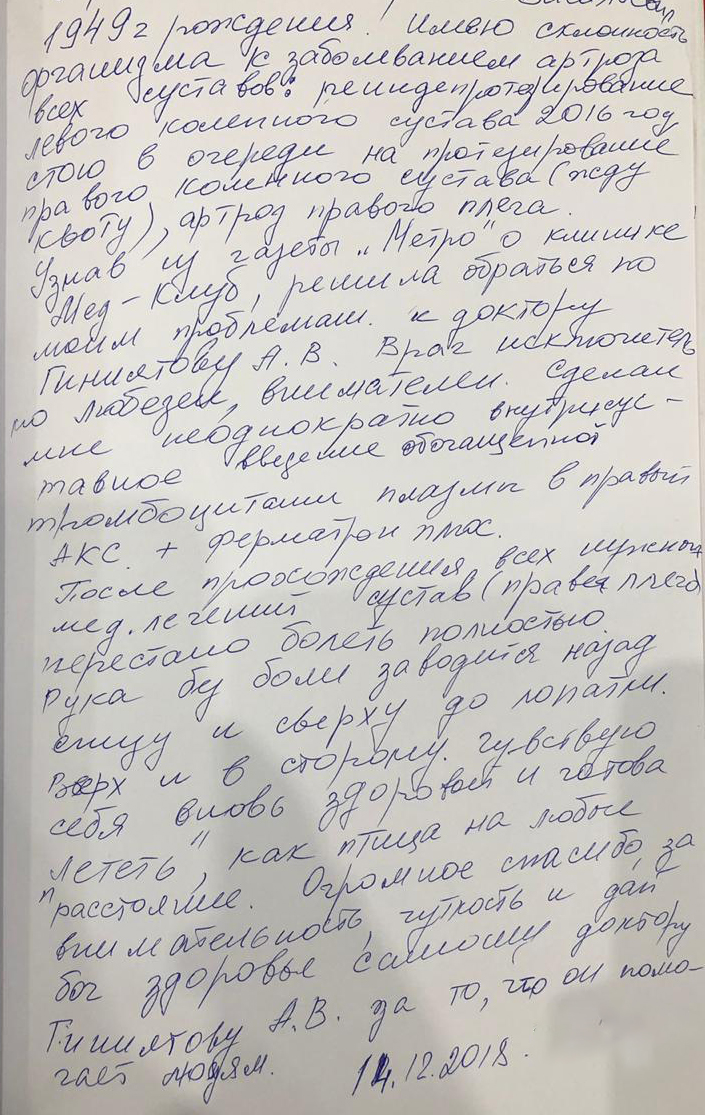 1949г рождения. Имею склонность
организма к заболеванием артроза
всех суставов: реиндепротезирование
левого коленного сустава 2016 год
стою в очереди на протезирование
правого коленного сустава (жду
квоту), артроз правого плеча.
Узнав из газеты „Метро" о клинике
Мед-Клуб, решила обраться по
моим проблемам. к доктору
Гиниятову А.В. Врач исключитель
но любезен, внимателен. Сделал
мне неоднократно внутрисус-
тавное введение обогащенной
тромбоцитами плазмы в правый
АКС. + ферматрон плюс.
После прохождения всех нужных
мед. лечений сустав (правое плечо
перестало болеть полностью
Рука бу боли заводится назад
спицу и сверху до лопатки.
Вверх и в сторону. Чувствую
себя вновь здоровой и готова
"лететь", как птица на любые
расстояние. Огромное спасибо за
внимательность, чуткость и дай
бог здоровье самому доктору
Гиниятову А.В. за то, что он помо-
гает людям. 14.12.2018.